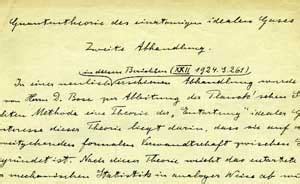 Quantentheorie des einatomigen idealen Gases
Zweite Abhandlung.
in diesen Berichten (XXII 1924. S. 261)
In einer neulich erschienenen Abhandlung wurde
von Herrn D. Bose zur Ableitung der Planck'schen
chten Methode eine Theorie der "Entartung" idealer G
nteresse dieser Theorie liegt darin, dass sie auf
weitgehenden formalen Verwandtschaft zwischen S
gründet ist. Nach dieser Theorie weicht das entartete
mechanischen Statistik in analoger Weise ab wie